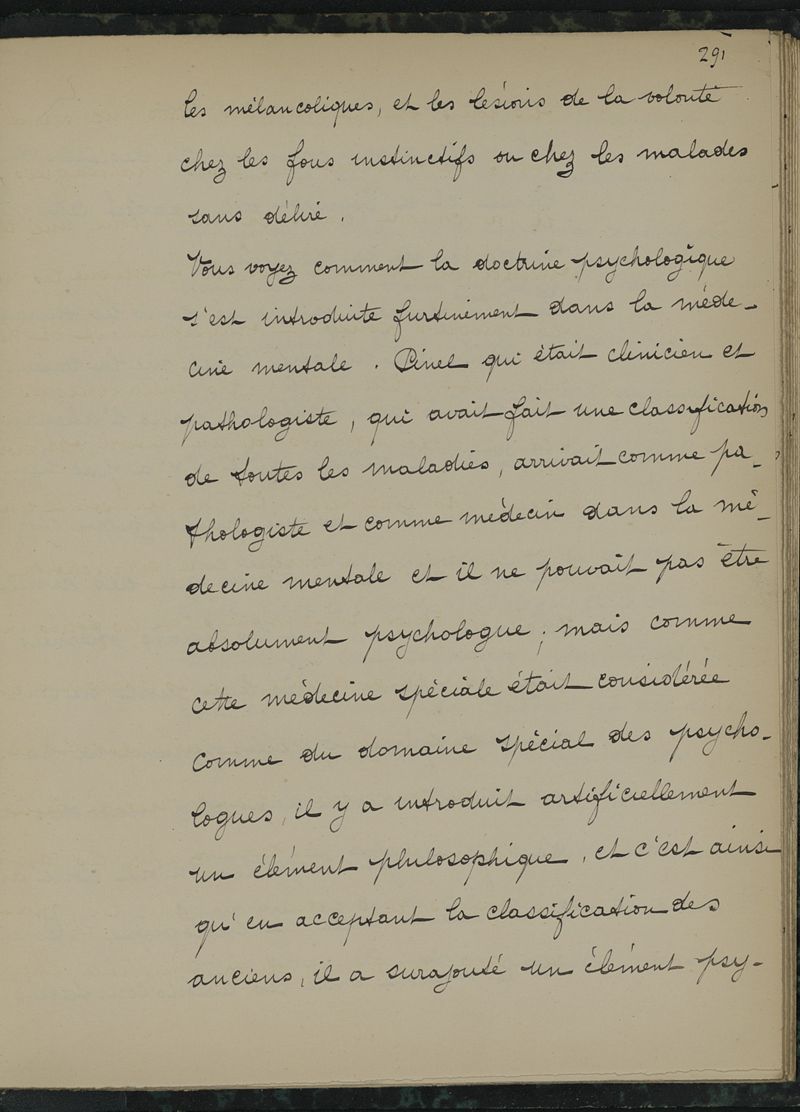 291
les mélancoliques, et les lésions de la volonté
chez les fous instinctifs ou chez les malades
sans délire.
Vous voyez comment la doctrine psychologique
s'est introduite furtivement dans la méde-
cine mentale. Pinel qui était clinicien et
pathologiste, qui avait fait une classification
de toutes les maladies, arrivait comme pa-
thologiste et comme médecin dans la mé-
decine mentale et il ne pouvait pas être
absolument psychologue ; mais comme
cette médecine spéciale était considérée
comme du domaine spécial des psycho-
logues, il y a introduit artificiellement
un élément philosophique, et c'est ainsi
qu'en acceptant la classification des
anciens, il a surajouté un élément psy-